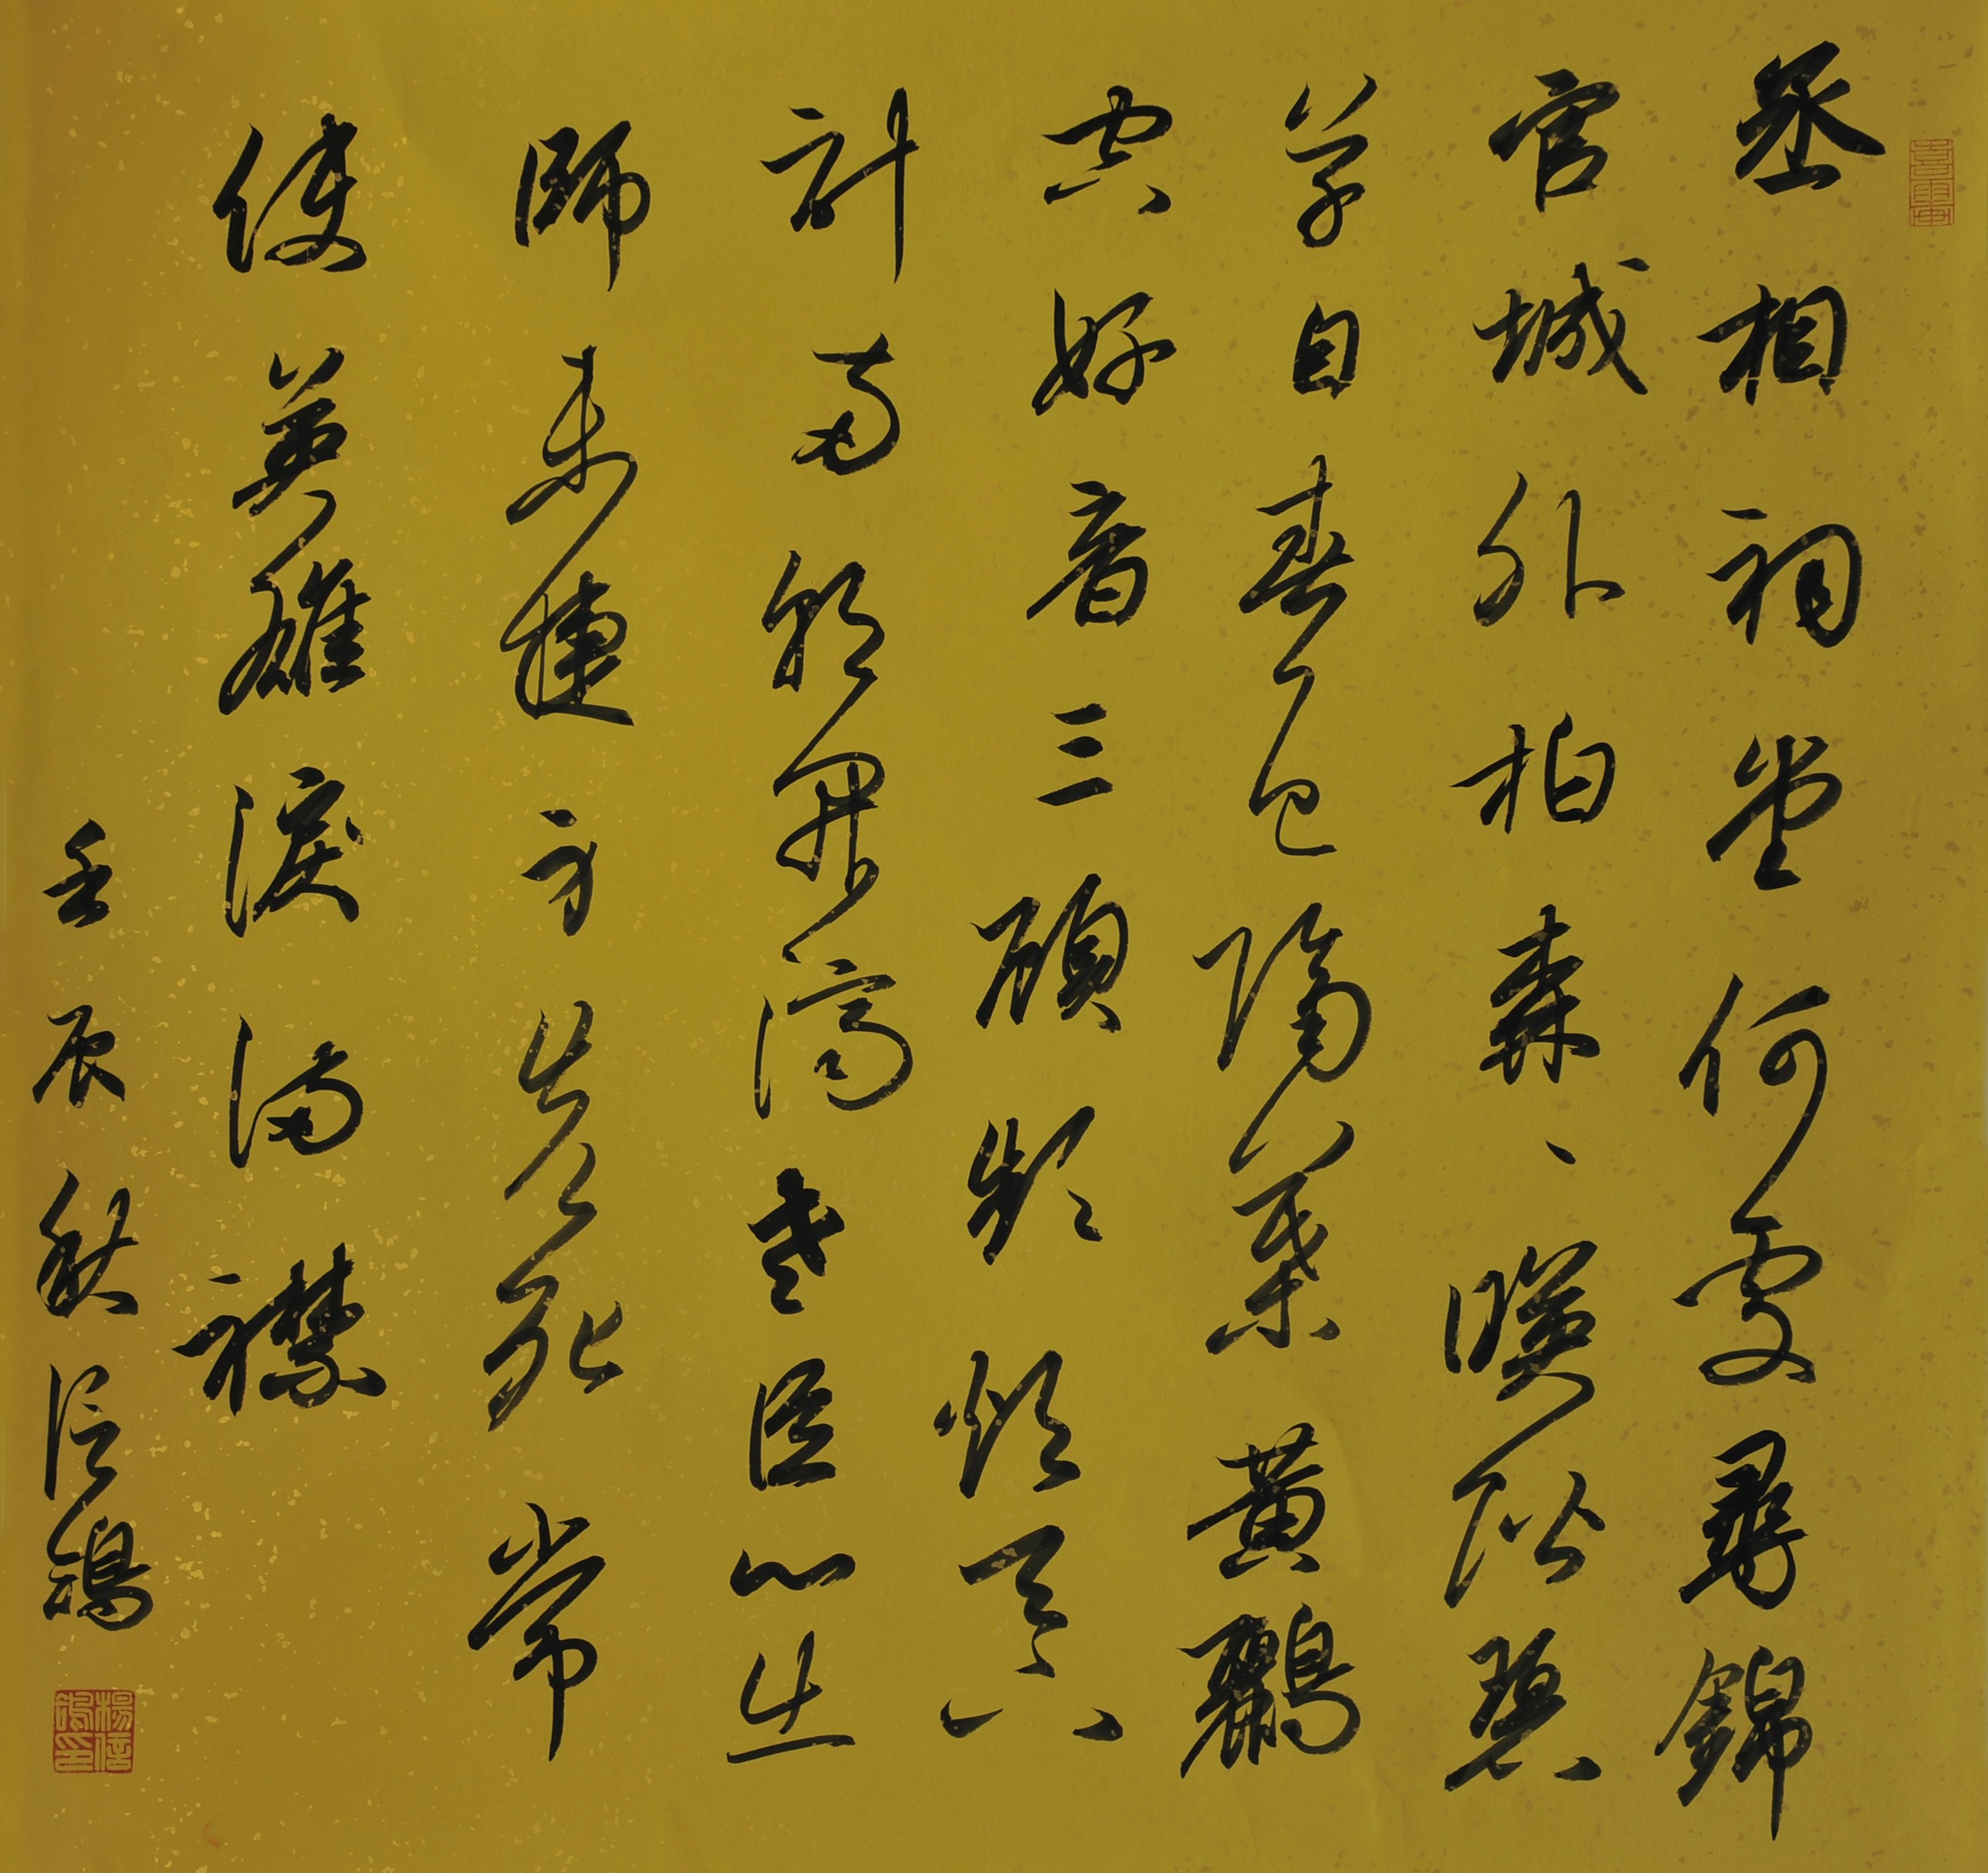 丞相祠堂何處尋錦
官城外柏森、映階碧
草自春色隔葉黃鸝
空好音三顧頻煩天下
計兩朝開濟老臣心出
師未捷身先死常
使英雄淚滿襟
壬辰秋信
楊信印